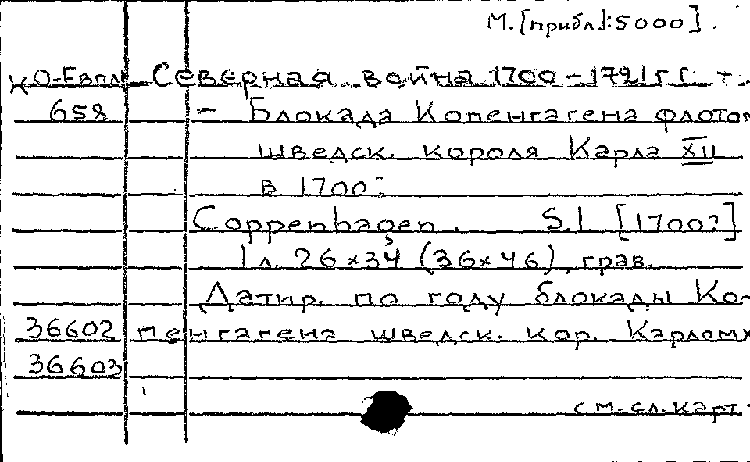 М. [прибл]:5000].
КО-Евпл Северная война 1700-1721 гг.
658 - Блокада Копенгагена флотом
шведск. короля Карла XII
в 1700:
Coppenhagen. S.l. [1700?]
1 л. 26x34 (36x46), грав.
Датир. по году блокады Ко-
36602 пенгагена шведск. кор. Карлом
36603
см. сл. карт.